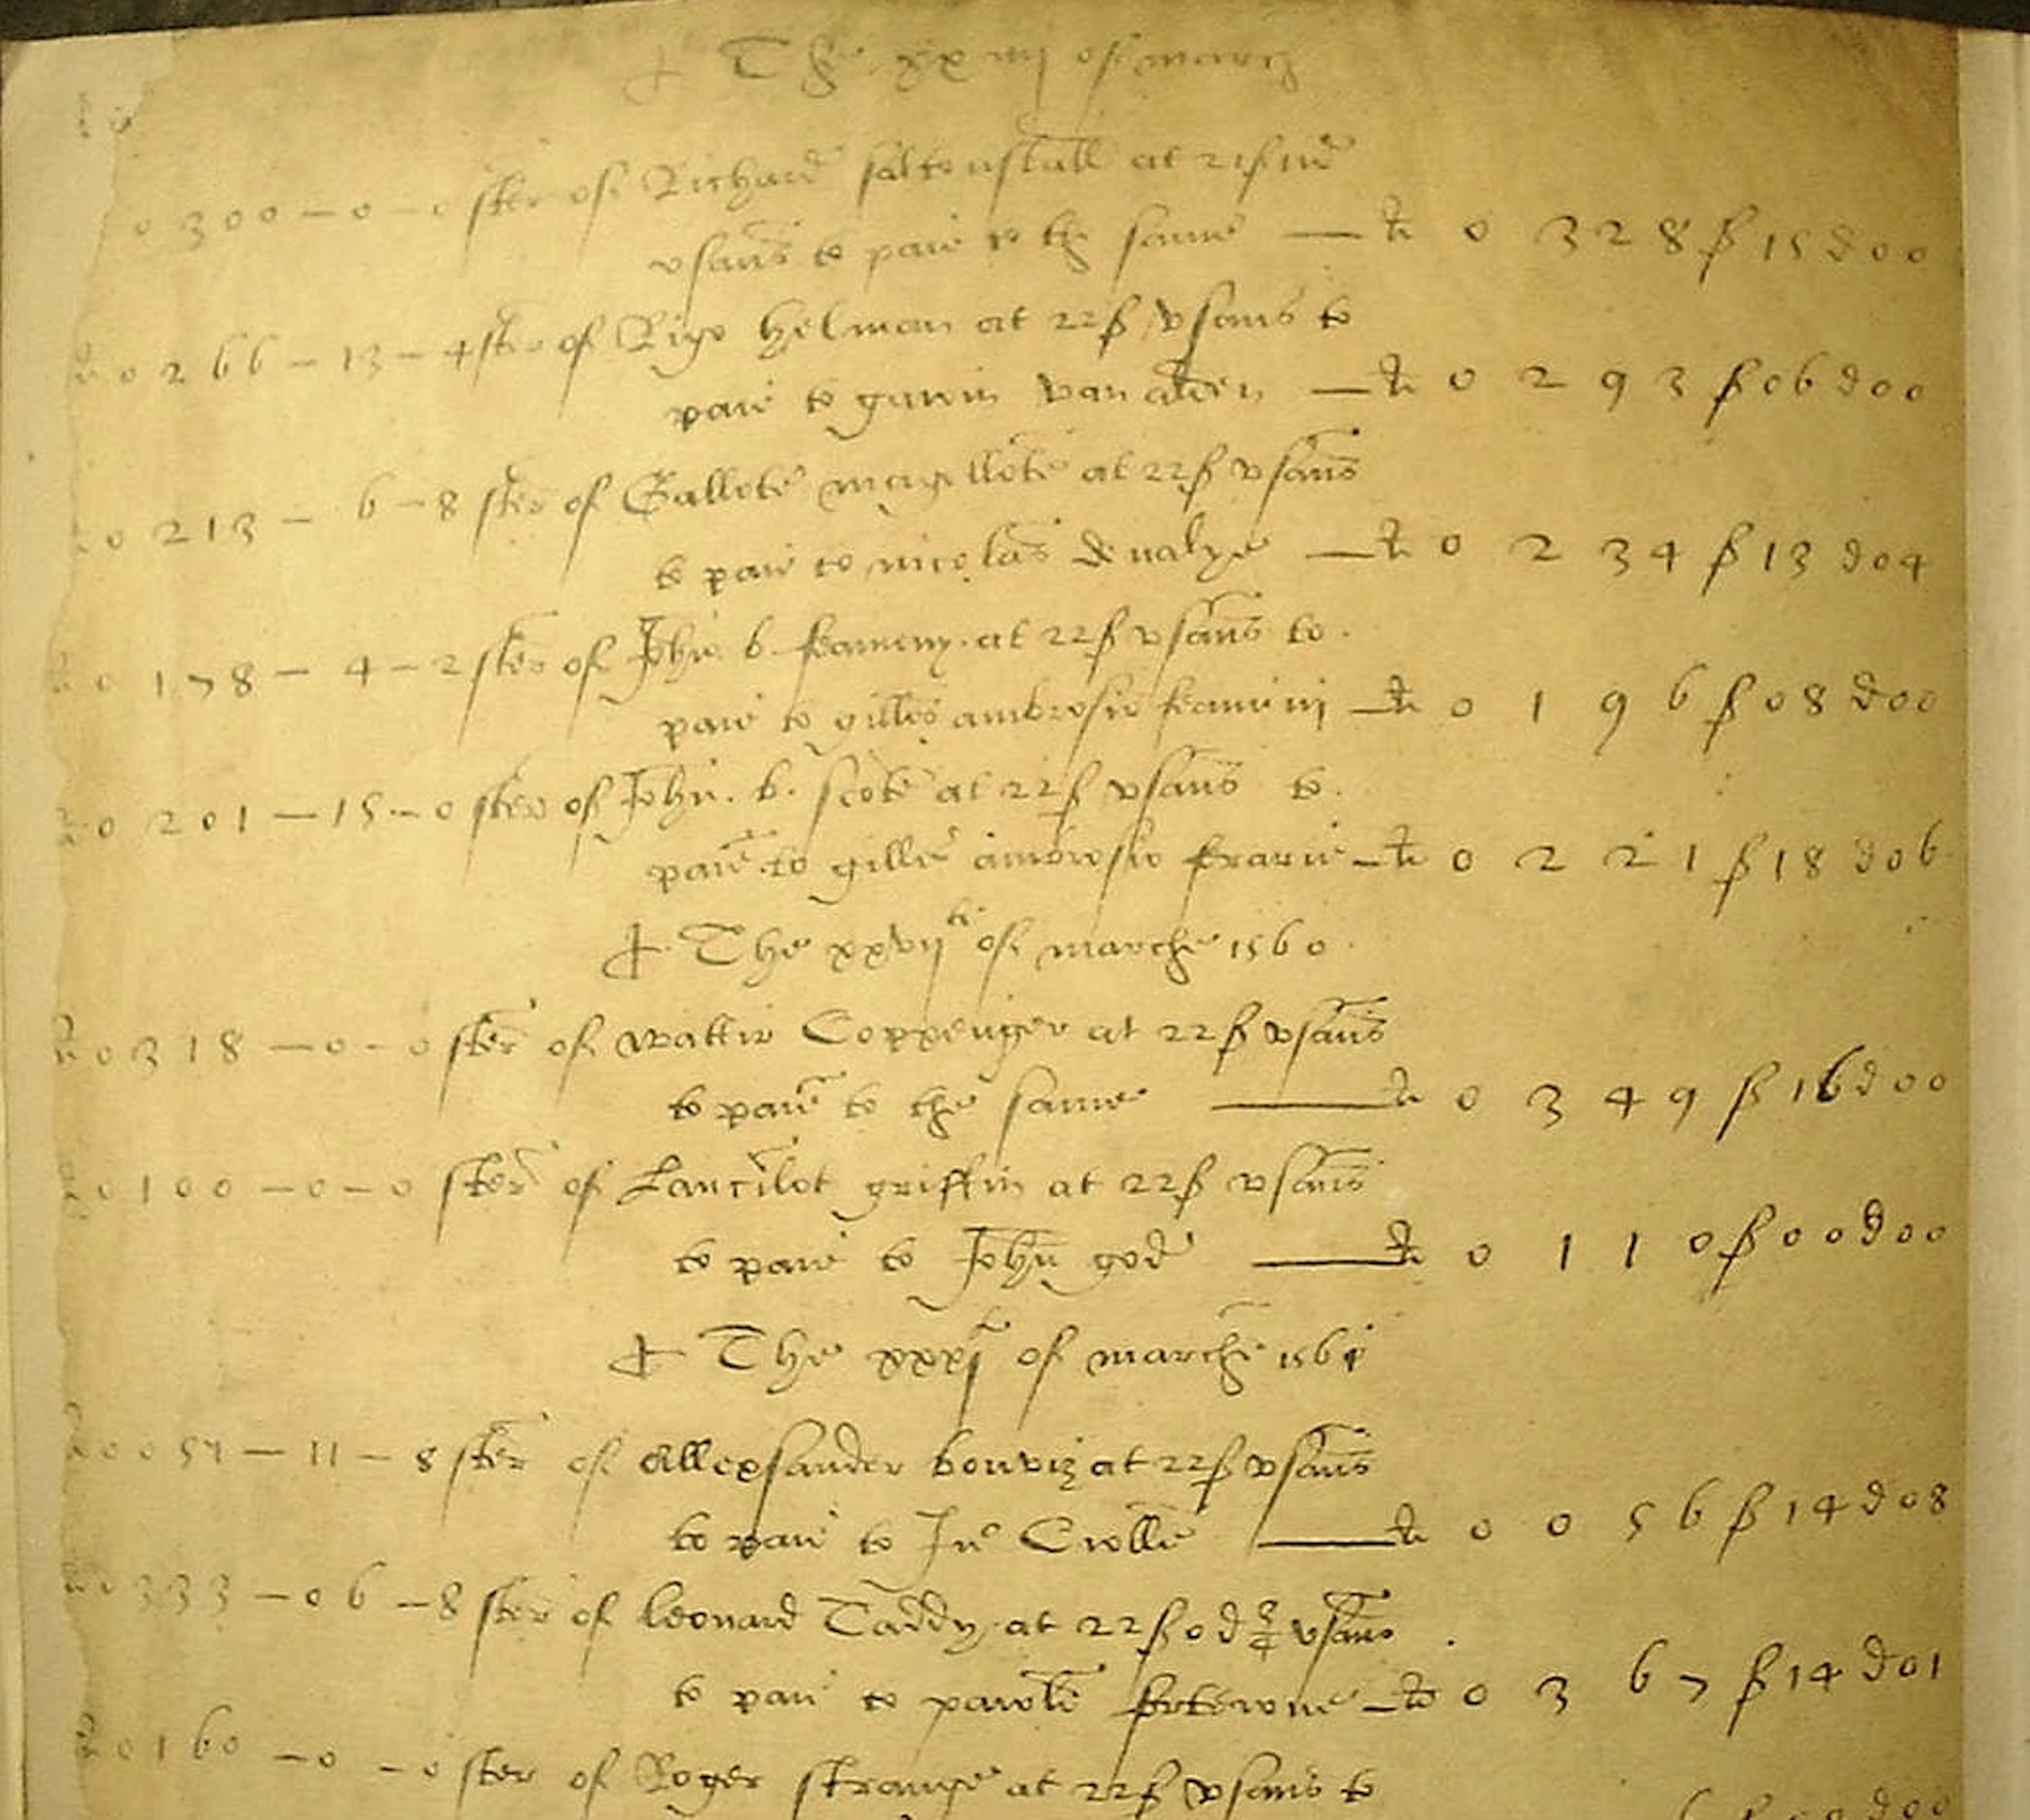 The xxiiij of marche
0300 — 0 — 0 ster of Richard saltonstall at 21ß 11d
vsans to paie to the same — li 0328 ß 15 d 00
li 0266 — 13 — 4 ster of Rigo helman at 22ß vsans to
paie to gawin van — li 0293 ß 06 d 00
0213 — 6 — 8 ster of at 22ß vsans
to paie to nicolas — li 0234 ß 13 d 04
li 0178 — 4 — 2 ster of John b. at 22ß vsans to
paie to gilles ambrosio — li 0196 ß 08 d 00
li 0201 — 15 — 0 ster of John. b. scote at 22ß vsans to
paie to gilles ambrosio — li 0221 ß 18 d 06
The xxvij th of marche 1560
li 0318 — 0 — 0 ster of watter Coppenger at 22ß vsans
to paie to the same — li 0349 ß 16 d 00
li 0100 — 0 — 0 ster of Lancelot griffin at 22ß vsans
to paie to John god — li 0110 ß 00 d 00
The xxxj of marche 156
li 0051 — 11 — 8 ster of Allexsander bonviz at 22ß vsans
to paie to — li 0056 ß 14 d 08
li 0333 — 06 — 8 ster of leonard Taddy at 22ß 0d 3/4 vsans
to paie to — li 0367 ß 14 d 01
li 0160 — 0 — 0 ster of Roger strange at 22ß vsans to